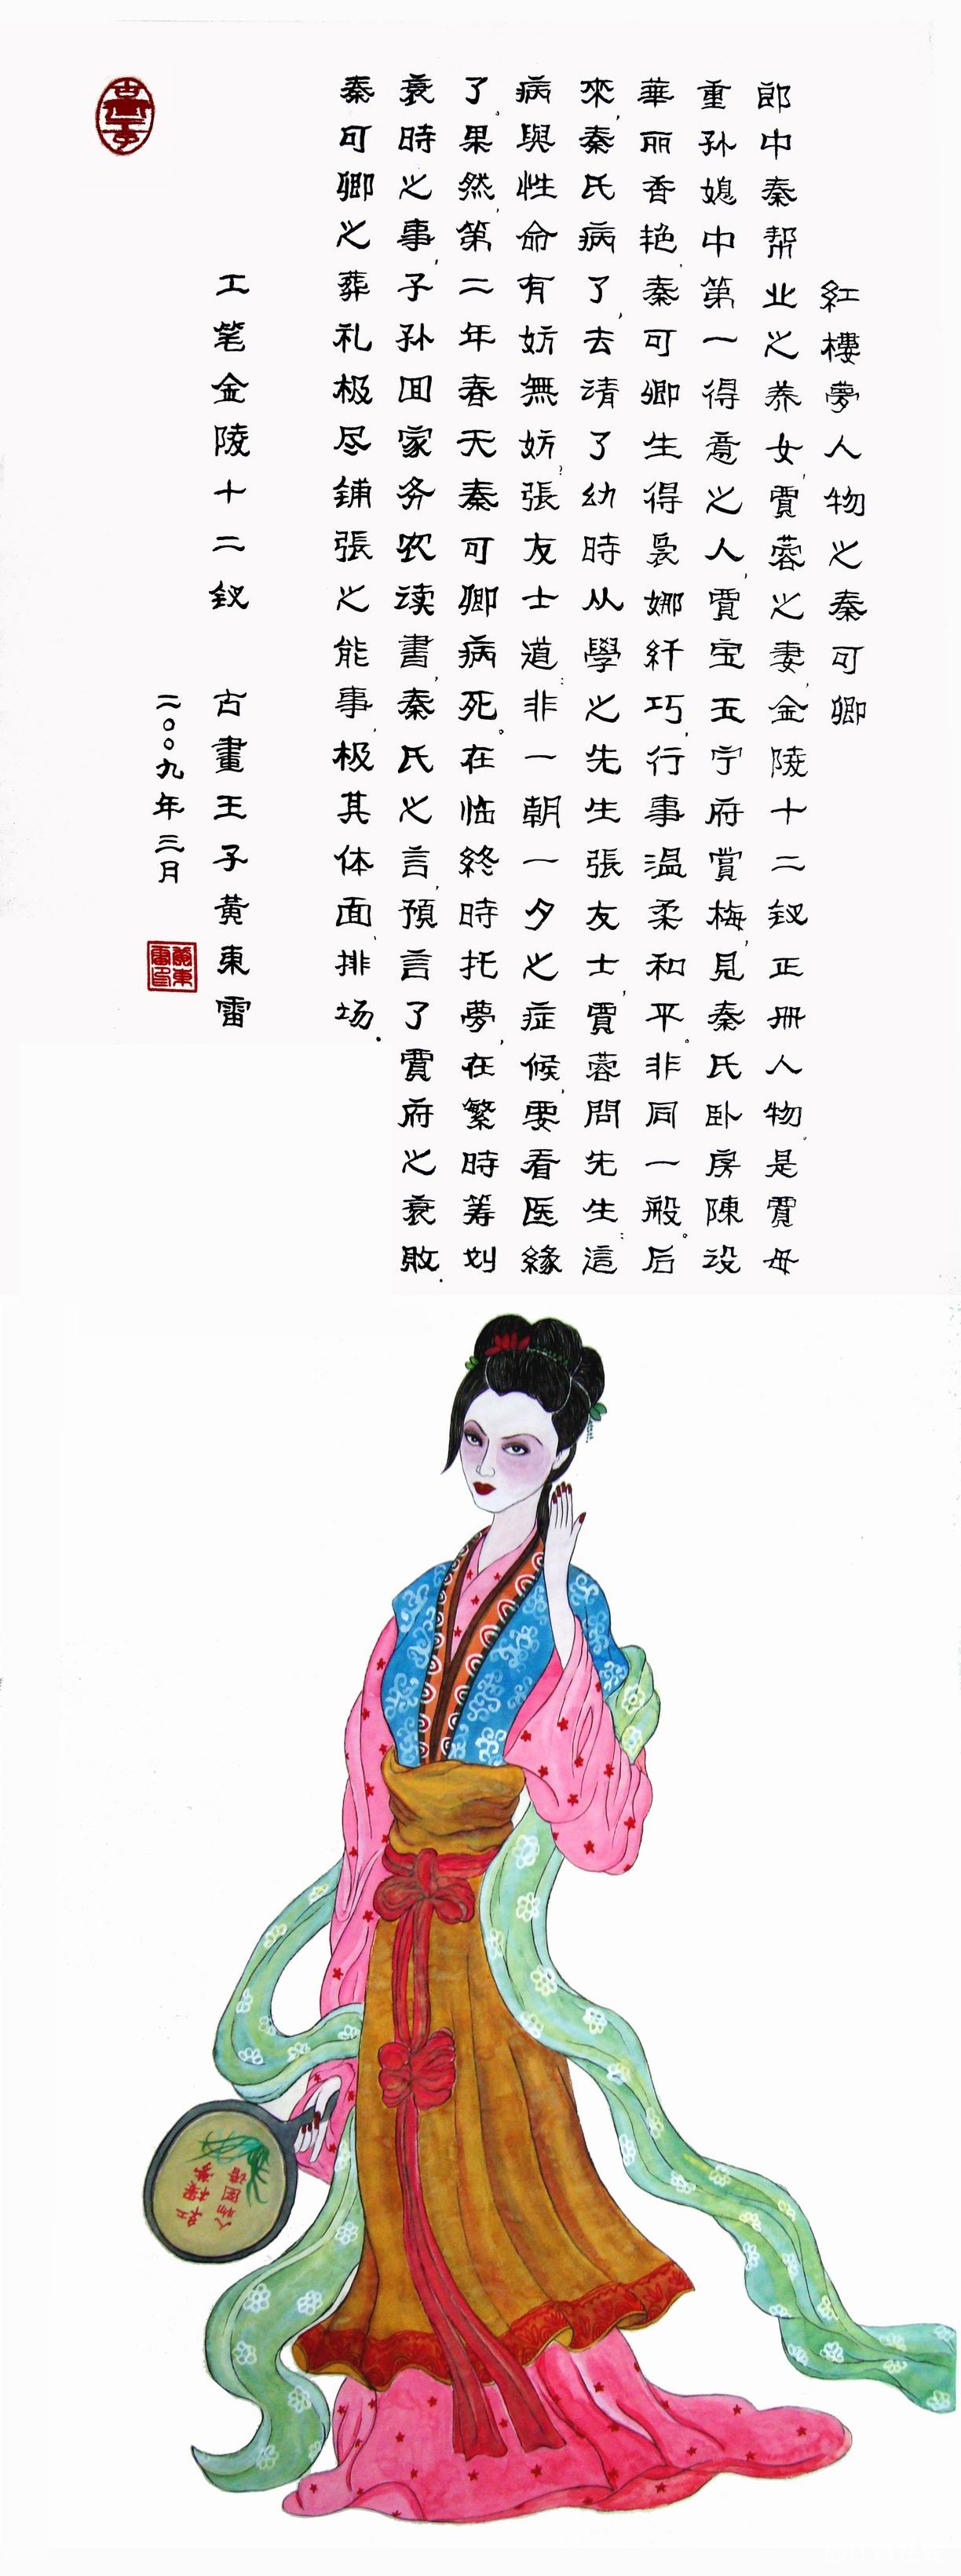 紅樓夢人物之秦可卿
郎中秦帮业之养女,賈蓉之妻,金陵十二釵正册人物。是賈母
重孙媳中第一得意之人,賈宝玉宁府賞梅,見秦氏卧房陳设
華丽香艳,秦可卿生得袅娜纤巧,行事温柔和平。非同一般。后
來,秦氏病了,去请了幼時从學之先生張友士,賈蓉問先生:這
病與性命有妨無妨?張友士道:非一朝一夕之症候,要看医緣
了。果然,第二年春天秦可卿病死。在临終時托夢,在繁時筹划
衰時之事,子孙回家务农读書,秦氏之言,預言了賈府之衰敗.
秦可卿之葬礼极尽铺張之能事,极其体面、排场.
工笔金陵十二釵 古畫王子黄東雷
二〇〇九年三月
黄東雷印
紅樓夢
人物图谱